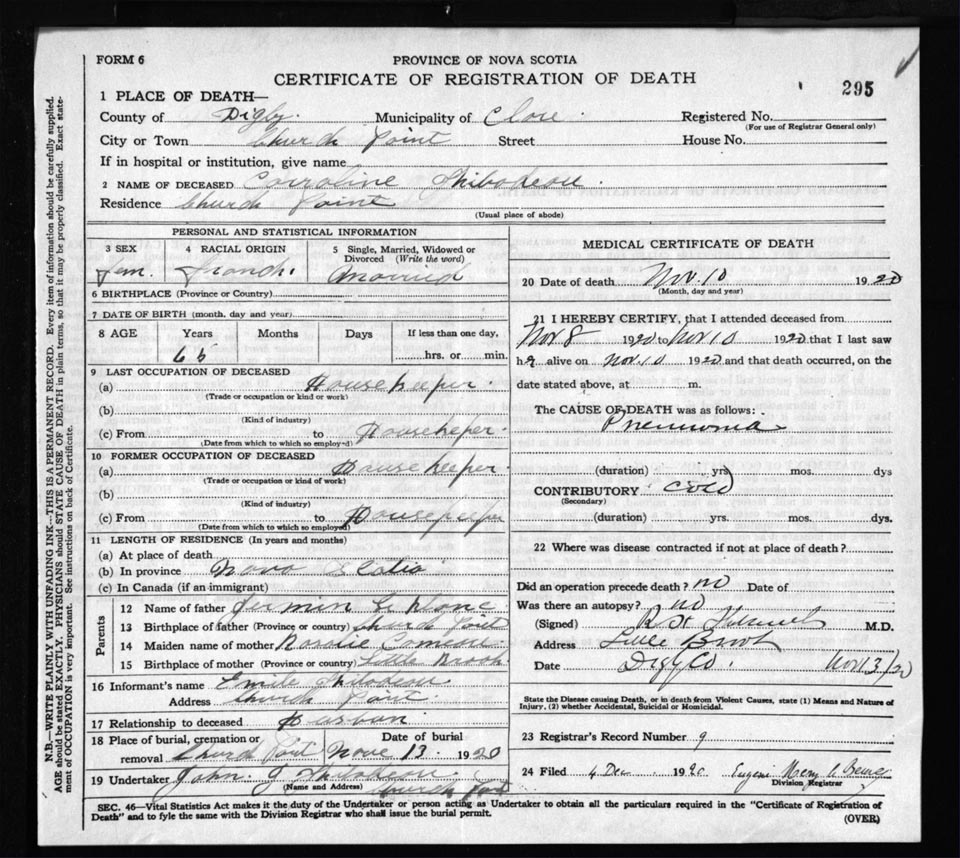 FORM 6
PROVINCE OF NOVA SCOTIA
CERTIFICATE OF REGISTRATION OF DEATH
295
1 PLACE OF DEATH—
County of Digby. Municipality of Clare. Registered No.
(For use of Registrar General only)
City or Town Church Point Street House No.
If in hospital or institution, give name
2 NAME OF DECEASED Corroline Thibodeau.
Residence Church Point
(Usual place of abode)
PERSONAL AND STATISTICAL INFORMATION
3 SEX 4 RACIAL ORIGIN 5 Single, Married, Widowed or Divorced (Write the word)
Fem. Franch. Married
6 BIRTHPLACE (Province or Country)
7 DATE OF BIRTH (month, day and year)
8 AGE Years Months Days If less than one day,
hrs. or min.
9 LAST OCCUPATION OF DECEASED
(a) House keeper.
(Trade or occupation or kind or work)
(b)
(Kind of industry)
(c) From to Housekeper.
(Date from which to which so employed)
10 FORMER OCCUPATION OF DECEASED
(a) House keeper.
(Trade or occupation or kind or work)
(b)
(Kind of industry)
(c) From to Housekeeper
(Date from which to which so employed)
11 LENGTH OF RESIDENCE (In years and months)
(a) At place of death
(b) In province Nova Scotia
(c) In Canada (if an immigrant)
Parents
12 Name of father Jermin Le Blanc
13 Birthplace of father (Province or country) Church Point
14 Maiden name of mother Rosalie Comeau
15 Birthplace of mother (Province or country) Little Brook
16 Informant's name Emile Thibodeau
Address Church Point.
17 Relationship to deceased Husban
18 Place of burial, cremation or removal Church Point Date of burial Nove 13. 1920
19 Undertaker John. J Thibodeau.
(Name and Address) Church Point
MEDICAL CERTIFICATE OF DEATH
20 Date of death Nov. 10 1920
(Month, day and year)
21 I HEREBY CERTIFY, that I attended deceased from
Nov 8 1920 to Nov 10 1920 that I last saw
her alive on Nov. 10 1920 and that death occurred, on the
date stated above, at m.
The CAUSE OF DEATH was as follows:
Pneumonia
(duration) yrs. mos. dys
CONTRIBUTORY cold
(Secondary)
(duration) yrs. mos. dys.
22 Where was disease contracted if not at place of death?
Did an operation precede death? no Date of
Was there an autopsy? no
(Signed) M.D.
Address Little Brook
Date Digby Co. Nov 13/20
State the Disease causing Death, or in death from Violent Causes, state (1) Means and Nature of
Injury, (2) whether Accidental, Suicidal or Homicidal.
23 Registrar's Record Number 9
24 Filed 4 Dec 1920 Division Registrar
SEC. 46—Vital Statistics Act makes it the duty of the Undertaker or person acting as Undertaker to obtain all the particulars required in the "Certificate of Registration of
Death" and to fyle the same with the Division Registrar who shall issue the burial permit.
(OVER)
N.B.—WRITE PLAINLY WITH UNFADING INK—THIS IS A PERMANENT RECORD. Every item of information should be carefully supplied.
AGE should be stated EXACTLY. PHYSICIANS should STATE CAUSE OF DEATH in plain terms, so that it may be properly classified. Exact state-
ment of OCCUPATION is very important. See instructions on back of Certificate.